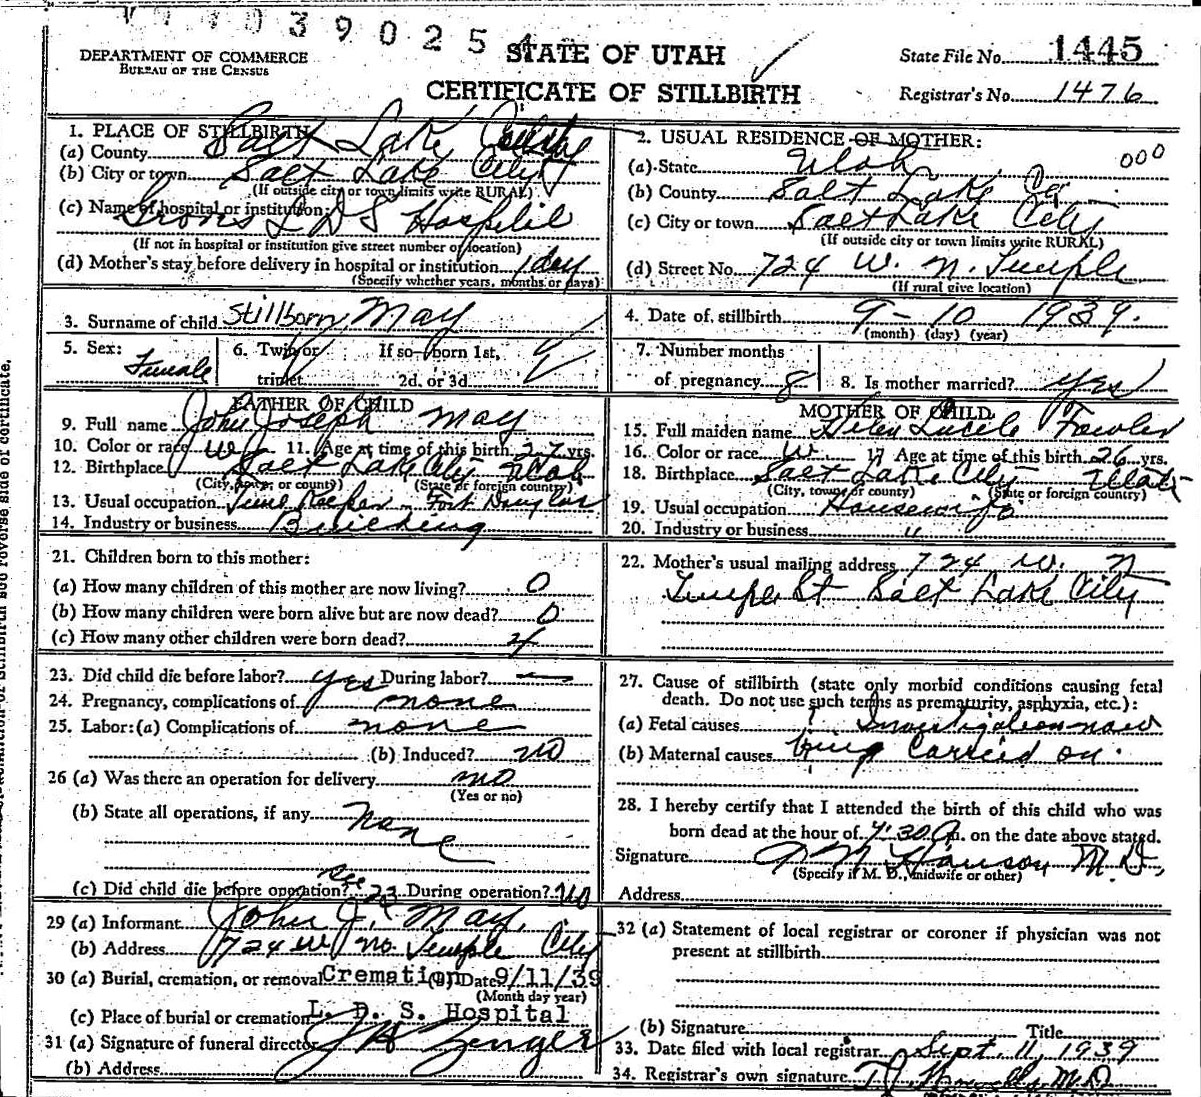 39025
DEPARTMENT OF COMMERCE
BUREAU OF THE CENSUS
STATE OF UTAH
CERTIFICATE OF STILLBIRTH
State File No. 1445
Registrar's No. 1476
1. PLACE OF STILLBIRTH
(a) County Salt Lake
(b) City or town Salt Lake City
(If outside city or town limits write RURAL)
(c) Name of hospital or institution: L D S Hospital
(If not in hospital or institution give street number or location)
(d) Mother's stay before delivery in hospital or institution 1 day
(Specify whether years, months or days)
2. USUAL RESIDENCE OF MOTHER:
(a) State Utah 000
(b) County Salt Lake Co.
(c) City or town Salt Lake City
(If outside city or town limits write RURAL)
(d) Street No. 724 W. N. Temple
(If rural give location)
3. Surname of child Stillborn May
4. Date of stillbirth 9-10 1939.
(month) (day) (year)
5. Sex: Female
6. Twin or triplet If so—born 1st, 2d, or 3d
7. Number months of pregnancy 8
8. Is mother married? yes
FATHER OF CHILD
9. Full name John Joseph May
10. Color or race W 11. Age at time of this birth 27 yrs.
12. Birthplace Salt Lake City Utah
(City, town, or county) (State or foreign country)
13. Usual occupation Time Keeper - Fort Douglas
14. Industry or business Building
MOTHER OF CHILD
15. Full maiden name Helen Lucile Fowler
16. Color or race W. 17 Age at time of this birth 26 yrs.
18. Birthplace Salt Lake City Utah
(City, town, or county) (State or foreign country)
19. Usual occupation Housewife
20. Industry or business "
21. Children born to this mother:
(a) How many children of this mother are now living? 0
(b) How many children were born alive but are now dead? 0
(c) How many other children were born dead? 4
22. Mother's usual mailing address 724 W. N
Temple St Salt Lake City
23. Did child die before labor? yes During labor? —
24. Pregnancy, complications of none
25. Labor: (a) Complications of none
(b) Induced? no
26 (a) Was there an operation for delivery no
(Yes or no)
(b) State all operations, if any None
(c) Did child die before operation? see 23 During operation? no
27. Cause of stillbirth (state only morbid conditions causing fetal
death. Do not use such terms as prematurity, asphyxia, etc.):
(a) Fetal causes ? Investigation now
(b) Maternal causes being carried on.
28. I hereby certify that I attended the birth of this child who was
born dead at the hour of 7:30 A m. on the date above stated.
Signature Hanson M.D.
(Specify if M. D., midwife or other)
Address
29 (a) Informant John J. May
(b) Address 724 W No. Temple City
30 (a) Burial, cremation, or removal Cremation (b) Date 9/11/39
(Month day year)
(c) Place of burial or cremation L. D. S. Hospital
31 (a) Signature of funeral director
(b) Address
32 (a) Statement of local registrar or coroner if physician was not
present at stillbirth
(b) Signature Title
33. Date filed with local registrar Sept. 11, 1939
34. Registrar's own signature M.D.